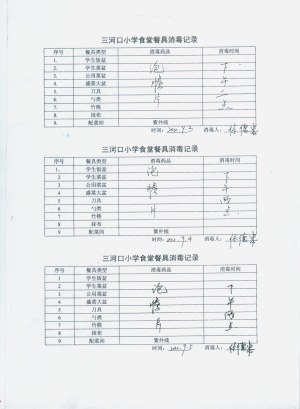 三河口小学食堂餐具消毒记录
序号 餐具类型 消毒药品 消毒时间
1. 学生饭盆
2. 学生菜盆 泡 下
3. 公用菜盆
4. 盛菜大盆 午
5. 刀具
6. 勺类 片
7. 竹筷
8. 抹布
9. 配菜间 紫外线
时间: 消毒人:
三河口小学食堂餐具消毒记录
序号 餐具类型 消毒药品 消毒时间
1. 学生饭盆 泡
2. 学生菜盆 下
3 公用菜盆
4 盛菜大盆 午
5 刀具 两
6 勺类 片 点
7 竹筷
8 抹布
9 配菜间 紫外线
时间: 消毒人:
三河口小学食堂餐具消毒记录
序号 餐具类型 消毒药品 消毒时间
1 学生饭盆
2 学生菜盆 泡 下
3 公用菜盆
4 盛菜大盆 午
5 刀具 两
6 勺类
7 竹筷 片 点
8 抹布
9 配菜间 紫外线
时间: 消毒人: